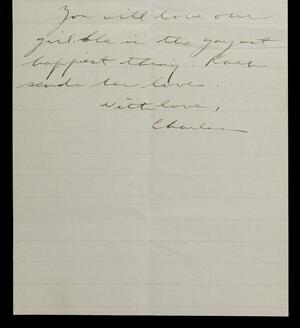 You will love our
girl. She is the gayest
happiest thing. Ruth
sends her love.
With love,
Charles